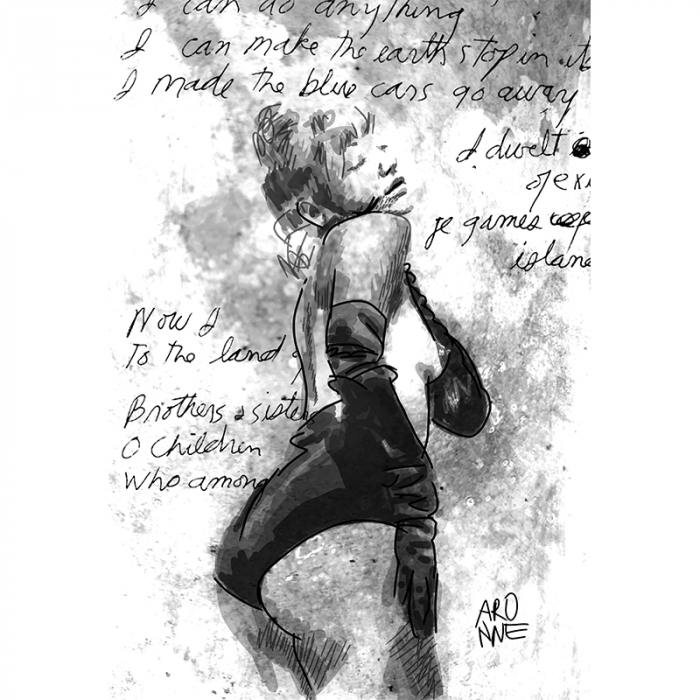 I can do anything
I can make the earth stop in its
I made the blue cars go away
I dwelt
of ex
ge games
island
Now I
To the land
Brothers & sisters
O Children
Who among
ARO
NNE